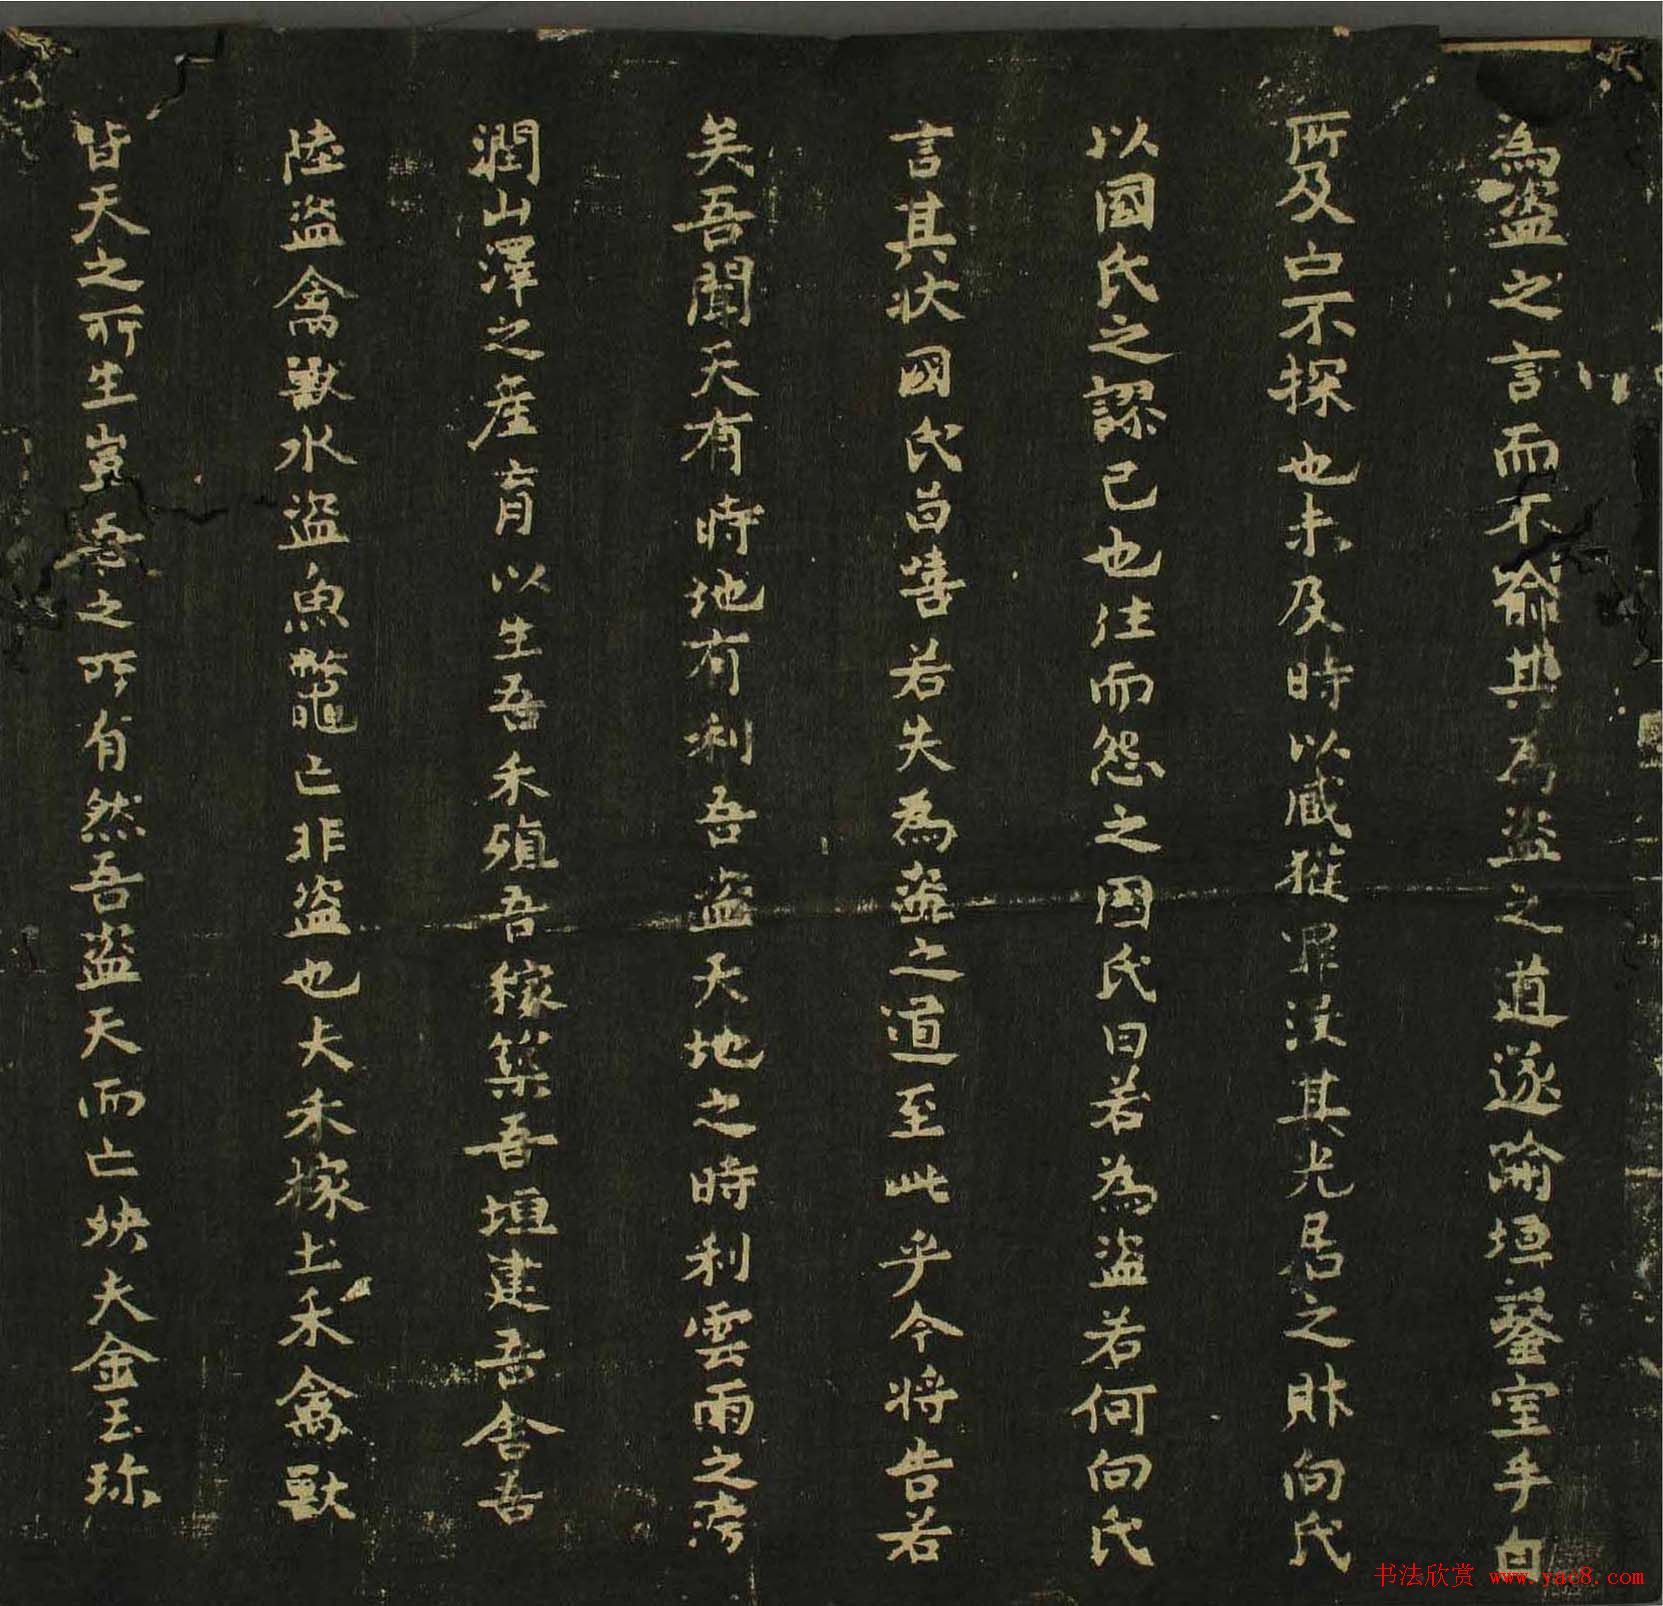 為盗之言而不喻其為盗之道遂踰垣鑿室手自
所及亡不探也未及時以臧獲罪没其先居之財向氏
以國氏之謬己也往而怨之國氏曰若為盗若何向氏
言其狀國氏曰嘻若失為盗之道至此乎今將告若
矣吾聞天有時地有利吾盗天地之時利雲雨之滂
潤山澤之產育以生吾禾殖吾稼築吾垣建吾舍吾
陸盗禽獸水盗魚鼈亡非盗也夫禾稼土禾禽獸
皆天之所生豈吾之所有然吾盗天而亡殃夫金玉珍
书法欣赏 www.yac8.com